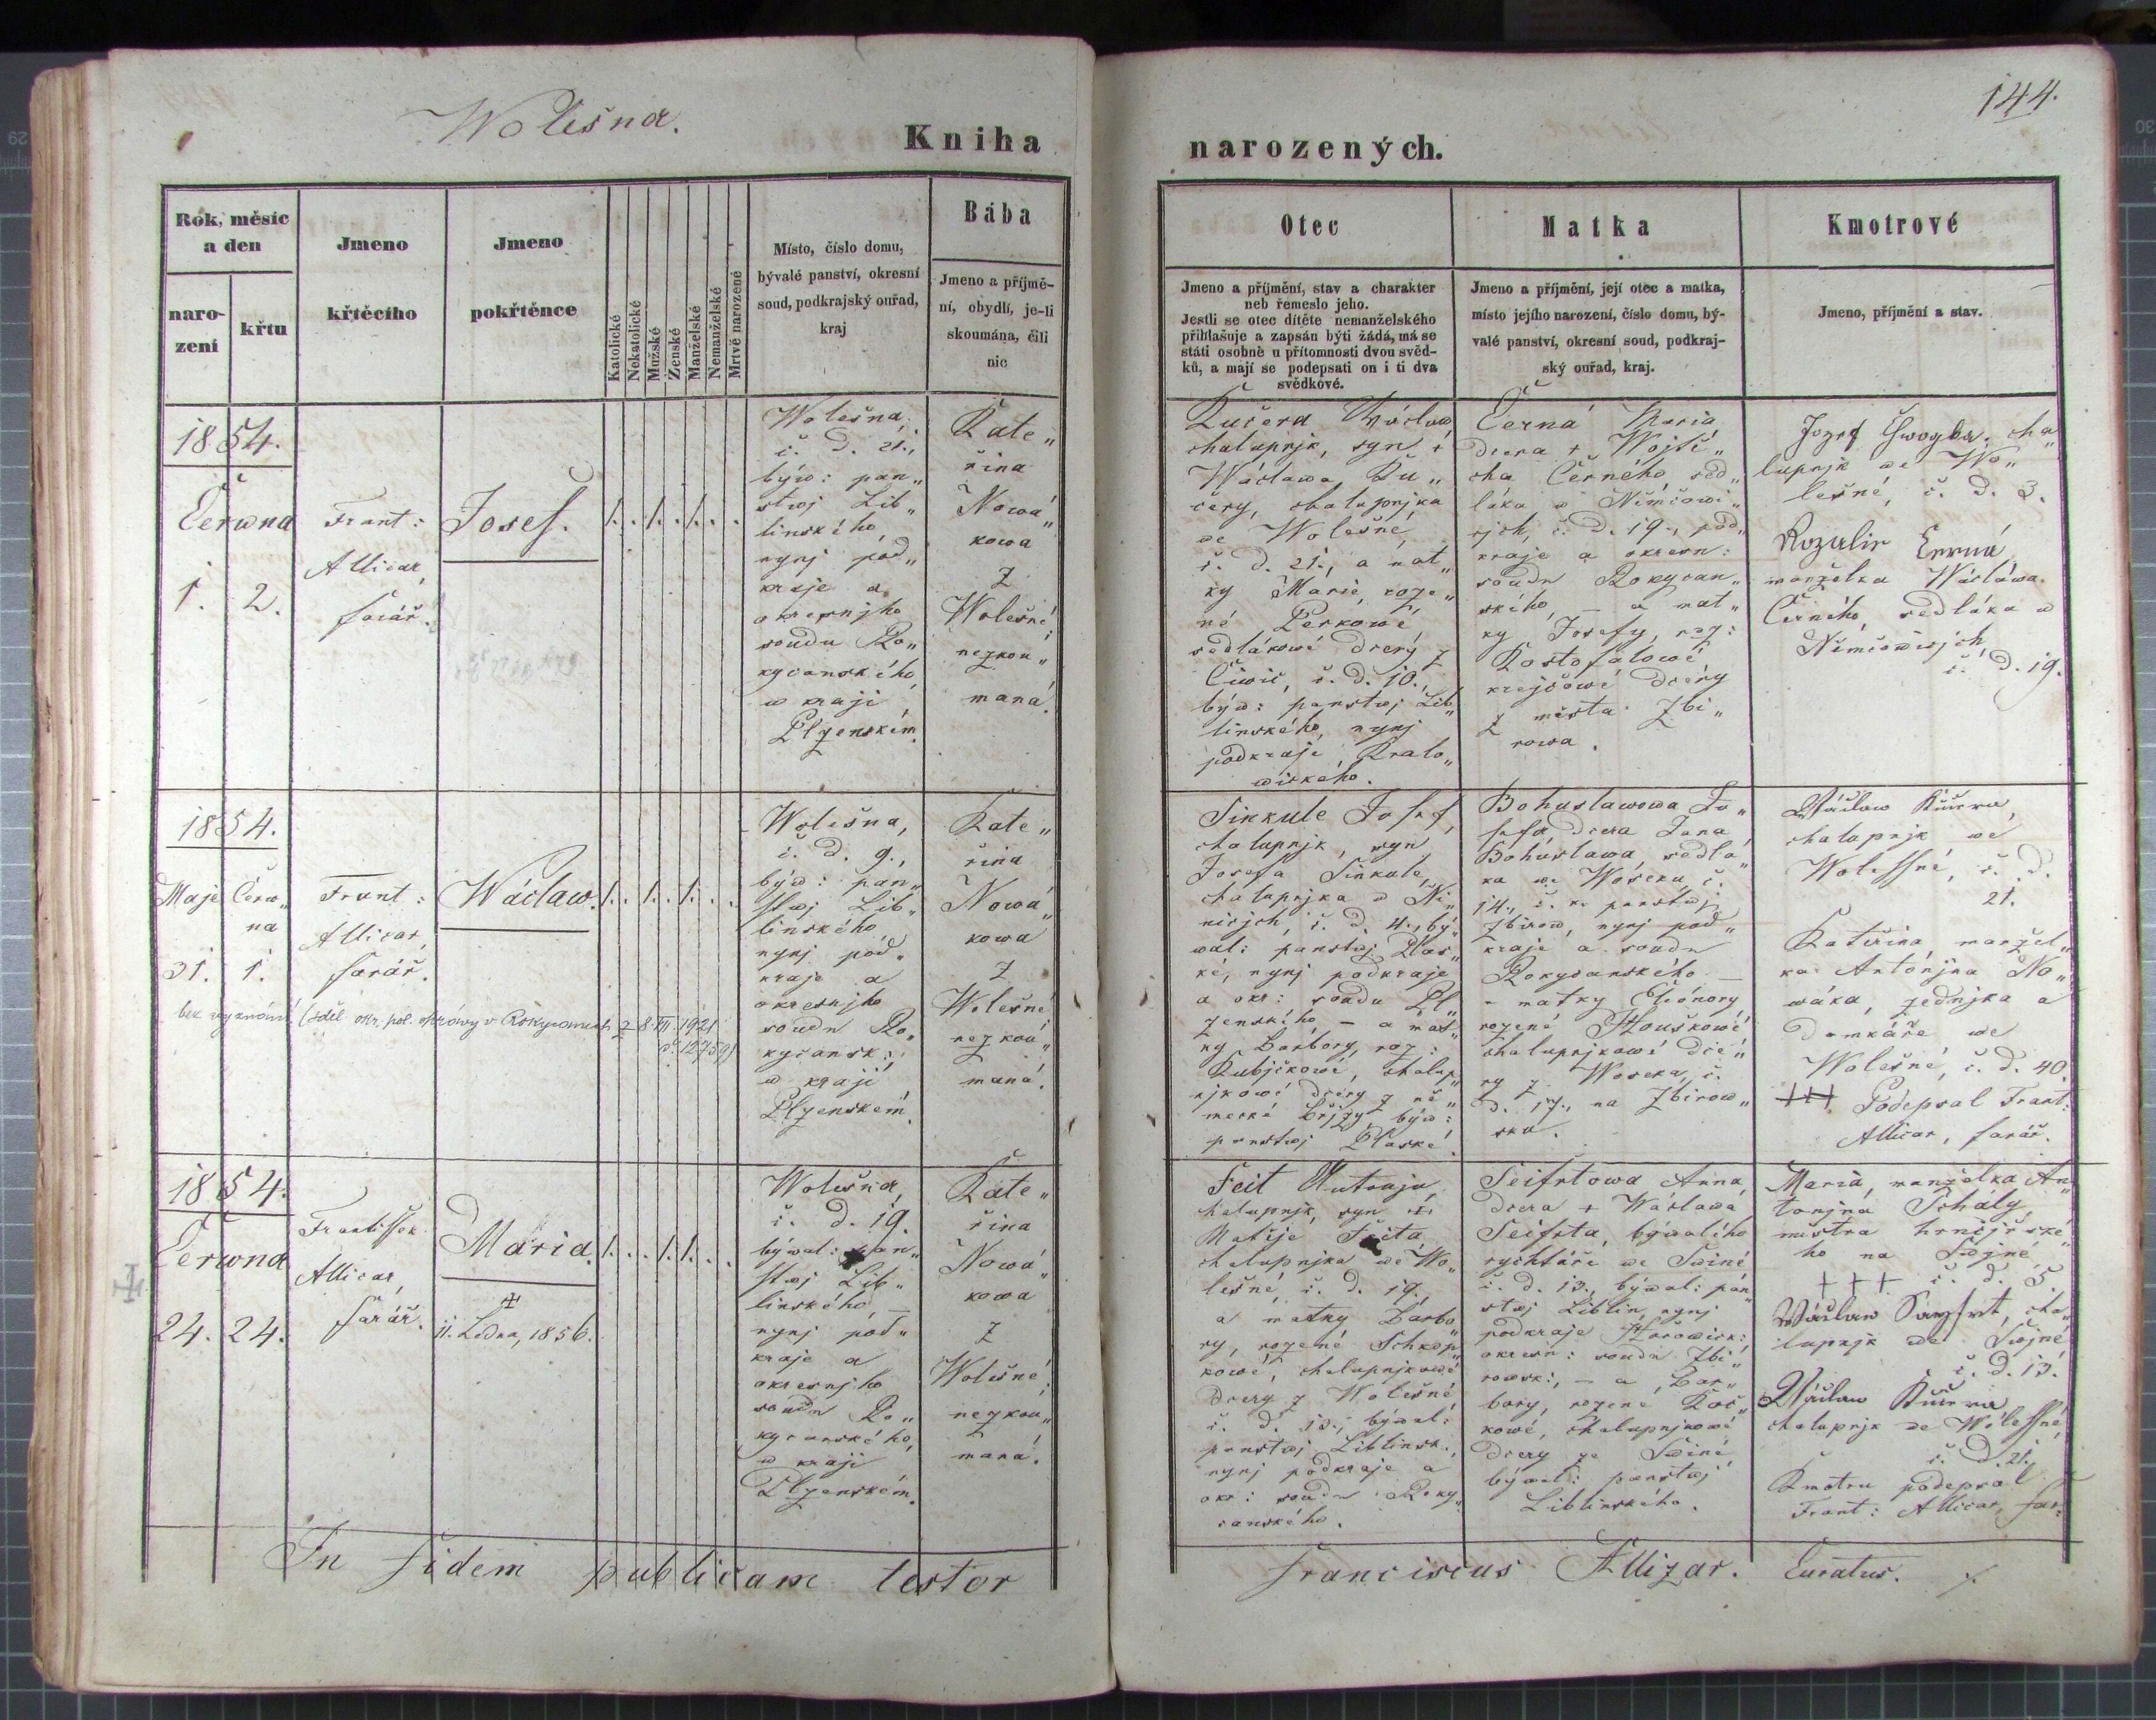 Wolešna.
Kniha
Rok, měsíc
a den
naro-
zení
křtu
Jmeno
křtěcího
Jmeno
pokřtěnce
Katolické
Nekatolické
Mužské
Ženské
Manželské
Nemanželské
Mrtvě narozené
Místo, číslo domu,
bývalé panství, okresní
soud, podkrajský ouřad,
kraj
Bába
Jmeno a příjmě-
ní, obydlí, je-li
skoumána, čili
nic
1854.
Června
1. 2.
Frant:
Allicar,
farář.
Josef.
1. . 1. . 1. . .
Wolešna,
č. D. 21.,
býw: pan„
stwj Lib„
linského,
nynj pod„
kraje a
okresnjho
soudu Ro„
kycanského,
w kraji
Plzenském.
Kate„
řina
Nowá„
kowa
z
Wolešné;
nezkou„
maná.
1854.
Maje Červ„
na
31. 1.
Frant:
Allicar,
farář.
Wáclaw.
1. . 1. . 1. . .
bez vyznání (sděl. okr. pol. správy v Rokycanech z 8.III.1921
č. 12759)
Wolešna,
č. d. 9.,
býw: pan„
stwj Lib„
linského,
nynj pod„
kraje a
okresnjho
soudu Ro„
kycansk:
w kraji
Plzenském.
Kate„
řina
Nowá„
kowa
z
Wolešné;
nezkou„
maná.
1854.
Června
24. 24.
Frantissek
Allicar,
farář.
Maria.
11. Ledna, 1856.
1. . . 1. 1. . .
Wolešna,
č. d. 19.
býwal: pan„
stwj Lib„
linského –
nynj pod„
kraje a
okresnjho
soudu Ro„
kycanského,
w kraji
Plzenském.
Kate„
řina
Nowá„
kowa
z
Wolešné;
nezkou„
maná.
In fidem publicam testor
144.
narozených.
Otec
Jmeno a příjmění, stav a charakter
neb řemeslo jeho.
Jestli se otec dítěte nemanželského
přihlašuje a zapsán býti žádá, má se
státi osobně u přítomnosti dvou svěd-
ků, a mají se podepsati on i ti dva
svědkové.
Matka
Jmeno a příjmění, její otec a matka,
místo jejího narození, číslo domu, bý-
valé panství, okresní soud, podkraj-
ský ouřad, kraj.
Kmotrové
Jmeno, příjmění a stav.
Kučera Wáclaw,
chalupnjk, syn +
Wáclawa Ku„
čery, chalupnjka
we Wolešné,
č. D. 21., a mat„
ky Marie, roze„
né Perkowé
sedlákowé dcery z
Čiwic, č. d. 10.,
býw: panstwj Lib„
linského, nynj
podkraje Kralo„
wického.
Černá Maria
dcera + Wojtě„
cha Černého, sed„
láka w Němčowi„
cjch, č. D. 19., pod„
kraje a okresn:
soudu Rokycan„
ského, – a mat„
ky Josefy, roz:
Kostofalowé,
krejčowé dcery
z města Zbi„
rowa.
Jozef Chwoyka, cha„
lupnjk we Wo„
lešné, č. D. 3.
Rozalie Černá
manželka Wácláwa
Černého, sedláka w
Němčowicjch,
č. D. 19.
Sinkule Josef,
chalupnjk, syn
Josefa Sinkule,
chalupnjka w Ni„
nicjch, č. d. 4., bý„
wal: panstwj Plas„
ké, nynj podkraje
a okr: soudu Pl„
zenského – a mat„
ky Barbory, roz:
Kubjčkowé, chalup„
njkowé dcery z ně„
mecké Břjzy, býw:
panstwj Plaské.
Bohuslawowa Jo„
sefa, dcera Jana
Bohuslawa, sedlá„
ka we Woseku, č.
14., c. k. panstwj
Zbirow, nynj pod„
kraje a soudu
Rokycanského –
a matky Eleónory
rozené Hlouškowé
chalupnjkowé dce„
ry z Woseka, č.
d. 17., na Zbirow„
sku.
Wáclaw Kučera,
chalupnjk we
Wolessné, č. d.
21.
Kateřina, manžel„
ka Antonjna No„
wáka, zednjka a
domkáře we
Wolešné, č. d. 40.
+++ Podepsal Frant:
Allicar, farář.
Feit Mutouju,
chalupnjk, syn +
Matěje Feita,
chalupnjka we Wo„
lešné, č. d. 19.,
a matky Barbo„
ry, rozené Schkop„
kowé, chalupnjkowé
dcery z Wolešné
č. d. 13., býwal:
panstwj Liblinsk.,
nynj podkraje a
okr: soudu Roky„
canského.
Seifrtowa Anna,
dcera + Wáclawa
Seifrta, býwalého
rychtáře we Swiné
č. d. 13., býwal: pan„
stwj Liblin, nynj
podkraje Hořowick:
okresn: soudu Zbi„
rowsk:, – a Bar„
bory, rozené Koč„
kowé, chalupnjkowé
dcery ze Swiné
býwal: panstwj
Liblinského.
Maria, manželka An„
tonjna Schály,
mistra hrnčjřské„
ho na Swjné
+++ č. d. 5.
Wáclaw Sayfrt, cha„
lupnjk we Swjné
č. d. 13.
Wáclaw Kučera
chalupnjk we Wolessné
č. D. 21.
Kmotru podepsal
Frant: Allicar, far:
Franciscus Allizar. Curatus.